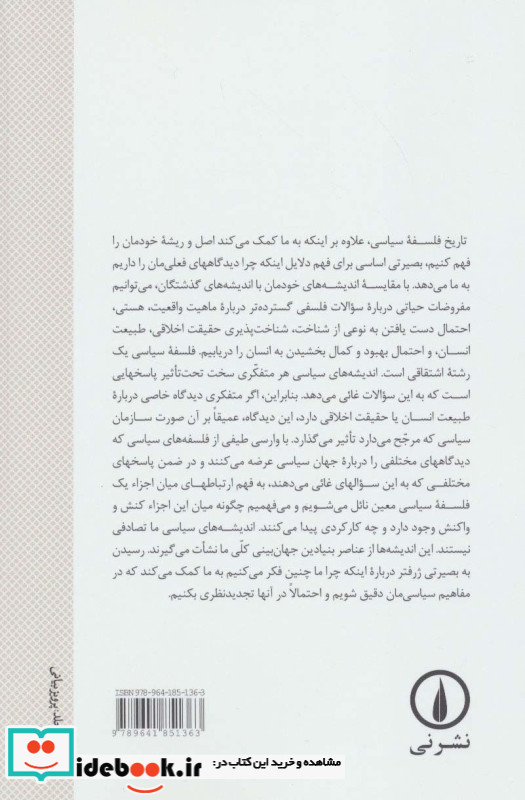 تاریخ فلسفهٔ سیاسی، علاوه بر اینکه به ما کمک می‌کند اصل و ریشهٔ خودمان را
فهم کنیم، بصیرتی اساسی برای فهم دلایل اینکه چرا دیدگاههای فعلی‌مان را داریم
به ما می‌دهد. با مقایسهٔ اندیشه‌های خودمان با اندیشه‌های گذشتگان، می‌توانیم
مفروضات حیاتی دربارهٔ سؤالات فلسفی گسترده‌تر دربارهٔ ماهیت واقعیت، هستی،
احتمال دست یافتن به نوعی از شناخت، شناخت‌پذیری حقیقت اخلاقی، طبیعت
انسان، و احتمال بهبود و کمال بخشیدن به انسان را دریابیم. فلسفهٔ سیاسی یک
رشتهٔ اشتقاقی است. اندیشه‌های سیاسی هر متفکّری سخت تحت‌تأثیر پاسخهایی
است که به این سؤالات غائی می‌دهد. بنابراین، اگر متفکری دیدگاه خاصی دربارهٔ
طبیعت انسان یا حقیقت اخلاقی دارد، این دیدگاه، عمیقاً بر آن صورت سازمان
سیاسی که مرجّح می‌دارد تأثیر می‌گذارد. با وارسی طیفی از فلسفه‌های سیاسی که
دیدگاههای مختلفی را دربارهٔ جهان سیاسی عرضه می‌کنند و در ضمن پاسخهای
مختلفی که به این سؤالهای غائی می‌دهند، به فهم ارتباطهای میان اجزاء یک
فلسفهٔ سیاسی معین نائل می‌شویم و می‌فهمیم چگونه میان این اجزاء کنش و
واکنش وجود دارد و چه کارکردی پیدا می‌کنند. اندیشه‌های سیاسی ما تصادفی
نیستند. این اندیشه‌ها از عناصر بنیادین جهان‌بینی کلّی ما نشأت می‌گیرند. رسیدن
به بصیرتی ژرفتر دربارهٔ اینکه چرا ما چنین فکر می‌کنیم به ما کمک می‌کند که در
مفاهیم سیاسی‌مان دقیق شویم و احتمالاً در آنها تجدیدنظری بکنیم.
جلد: پرویز بیانی
ISBN 978-964-185-136-3
9 789641 851363
نشرنی
idebook.ir
مشاهده و خرید این کتاب در: